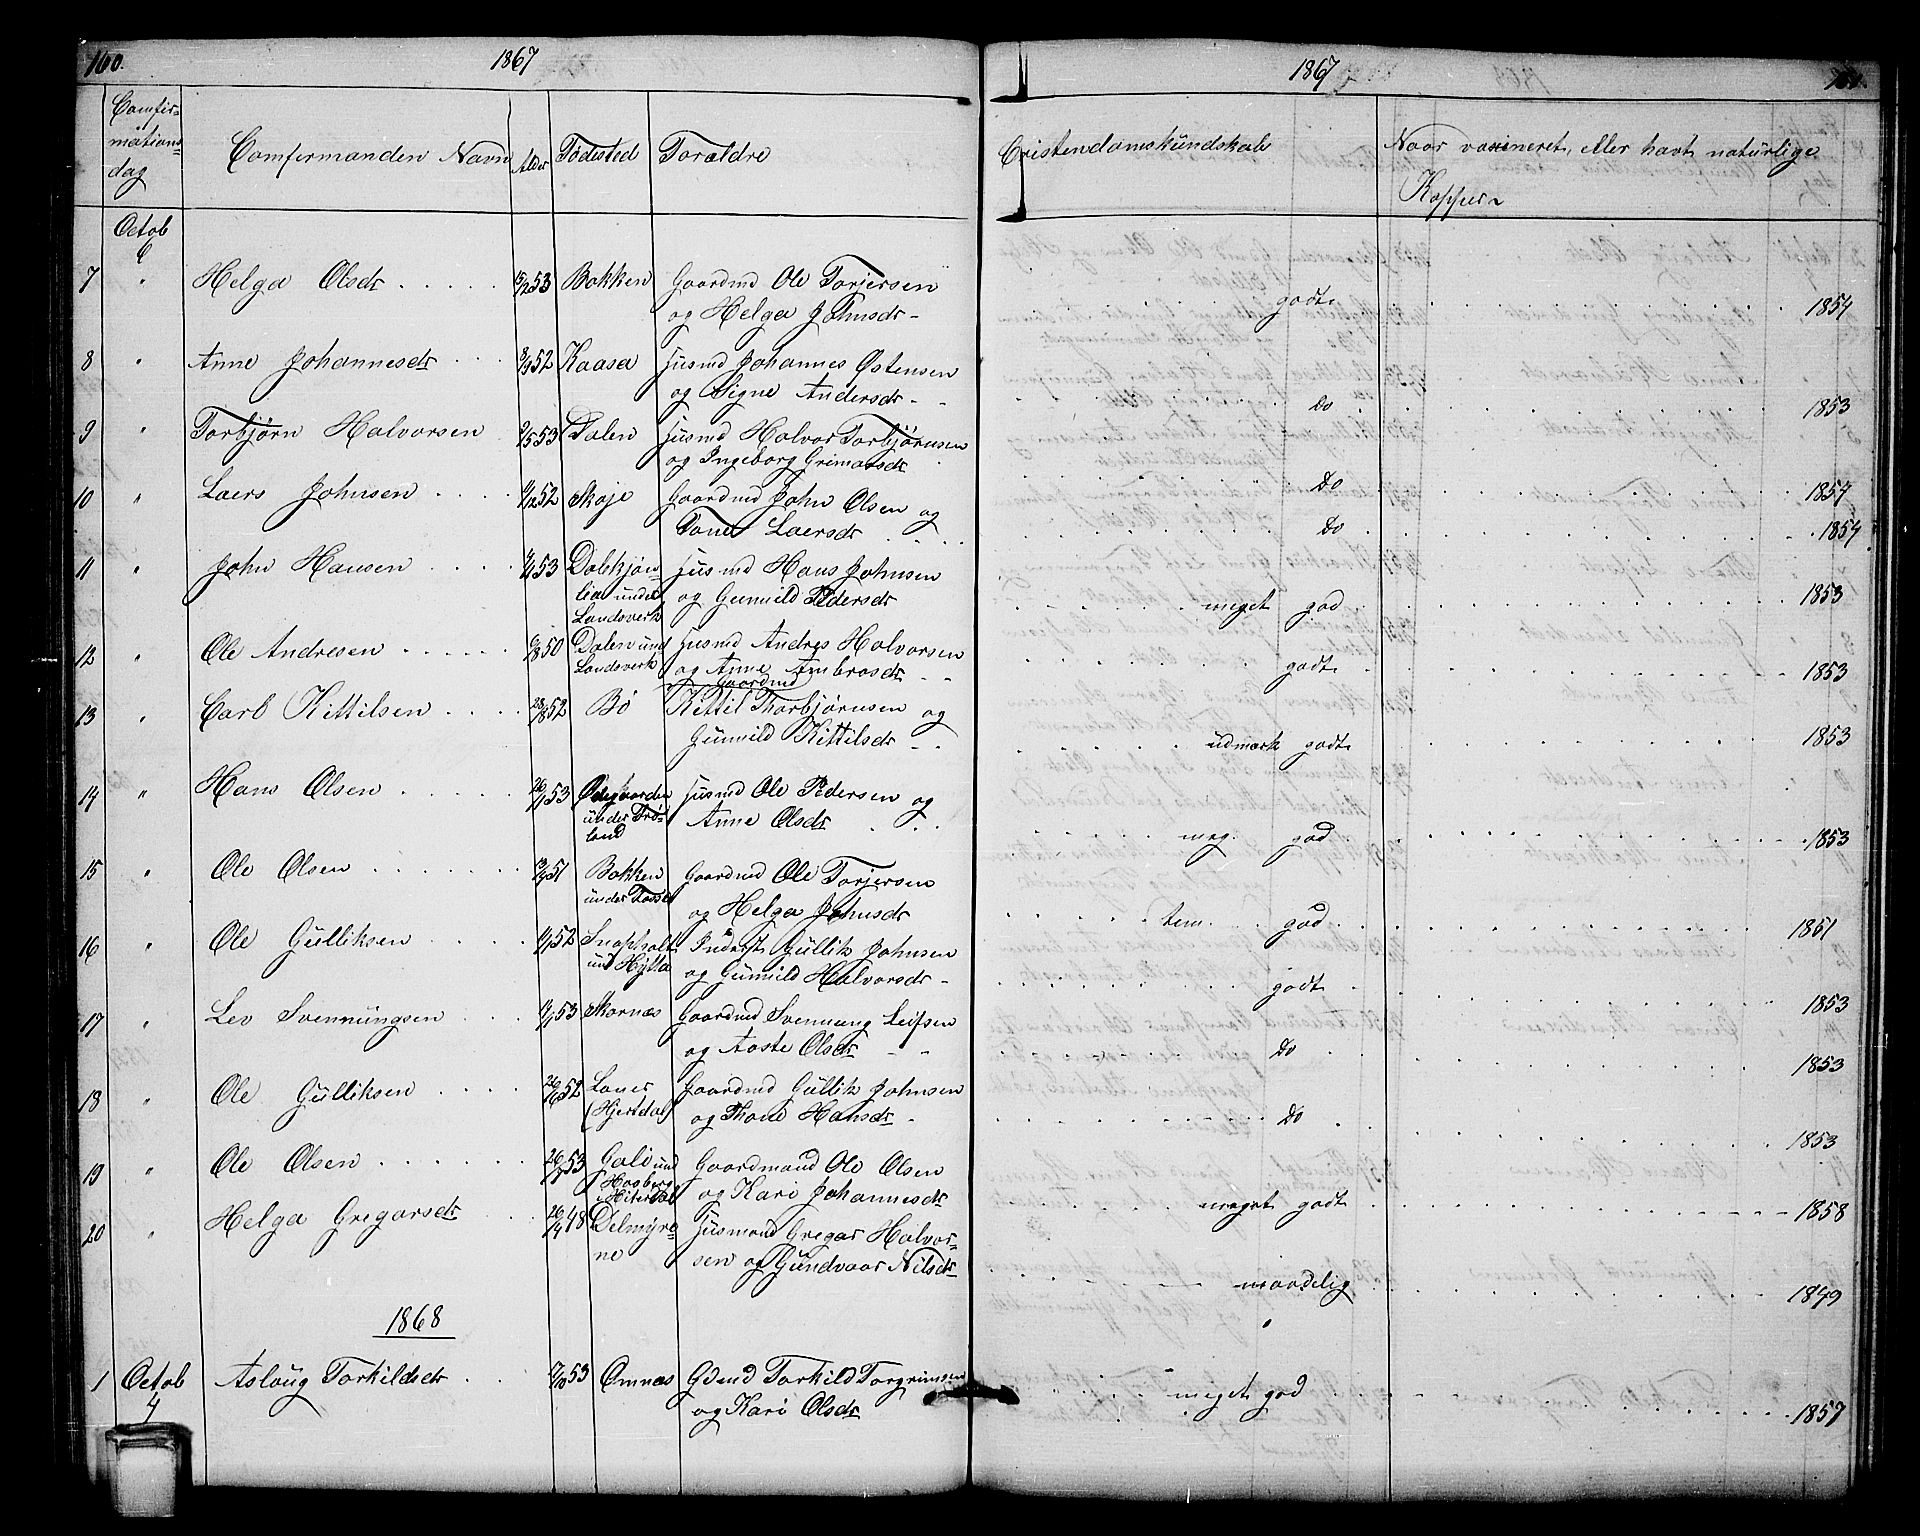 160.
1867
Comfir-
mations
dag
Comfermanden Navn
Alder
Födested
Forældre
Octob
6
7 " Helga Olsdr 15/2 53 Bakken Gaardmd Ole Torjersen
og Helga Johnsdr
8 " Anne Johannesdr 8/9 52 Kaasa Husmd Johannes Østensen
og Signe Andersdr
9 " Torbjørn Halvorsen 9/5 53 Dalen Husmd Halvor Torbjørnsen
og Ingeborg Grimarsdr
10 " Laers Johnsen 11/12 52 Skoje Gaardmd John Olsen og
Tone Laersdr
11 " John Hansen 53 Dalskjøn-
lia under
Landsverk
Husmd Hans Johnsen
og Gunnild Pedersdr
12 " Ole Andresen 6/8 50 Dalen und
Landsverk
Husmd Andres Halvorsen
og Anne Ambrosdr
13 " Carl Kittilsen 28/8 52 Bö Gaardmd
Kittil Thorbjørnsen og
Gunnild Kittilsdr
14 " Hans Olsen 26/1 53 Ødegaarden
under Trö-
land
Husmd Ole Pedersen og
Anne Olsdr
15 " Ole Olsen 51 Bakken
under
Gaardmd Ole Torjersen
og Helga Johnsdr
16 " Ole Gulliksen 52 Snapholt
und Hytta
Inderst Gullik Johnsen
og Gunnild Halvorsdr
17 " Lev Svennungsen 53 Skornæs Gaardmd Svennung Leifsen
og Aaste Olsdr
18 " Ole Gulliksen 26/6 52
(Hjertdal)
Gaardmd Gullik Johnsen
og Thone Hansdr
19 " Ole Olsen 26/7 53 und
Haaberg
i Hiterdal
Gaardmand Ole Olsen
og Kari Johannesdr
20 " Helga Gregarsdr 26/4 48 Delmyre-
ne
Husmand Gregar Halvor-
sen og Gundvaar Nilsdr
1868
1 Octob
4
Aslaug Torkildsdr 7/10 53 Omnæs Gdmd Torkild Torgrimsen
og Kari Olsdr
1867
161.
Cristendomskundskab
Naar vaxineret, eller havt naturlige
Kopper
godt 1854
Do 1853
Do 1854
Do 1854
meget god 1853
godt 1853
udmærk godt 1853
meg. god 1853
tem. god 1861
godt 1853
Do 1853
Do 1853
meget godt 1858
maadelig 1849
meget god 1857